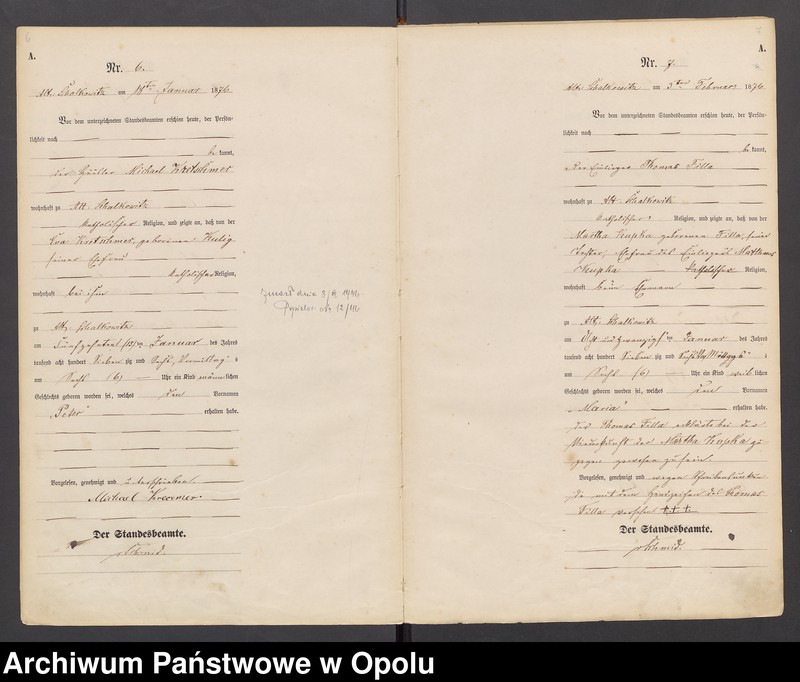 A.
Nr. 6.
Alt Schalkowitz am Januar 1876
Vor dem unterzeichneten Standesbeamten erschien heute, der Persön-
lichkeit nach
be kannt,
der Häusler Michael Kretschmer
wohnhaft zu Alt Schalkowitz
katholischer Religion, und zeigte an, daß von der
Eva Kretschmer, geborenen
seiner Ehefrau
katholischer Religion,
wohnhaft bei ihm
zu Alt Schalkowitz
am fünfzehnten (15) ten Januar des Jahres
tausend acht hundert sieben zig und sechs, Vormittags
um Sechs (6) Uhr ein Kind männlichen
Geschlechts geboren worden sei, welches den Vornamen
„Peter“ erhalten habe.
Vorgelesen, genehmigt und unterschrieben.
Michael
Der Standesbeamte.
Schmid.
Zmarł dnia 1946
12/46
A.
Nr. 7.
Alt Schalkowitz am 5ten Februar 1876
Vor dem unterzeichneten Standesbeamten erschien heute, der Persön-
lichkeit nach
be kannt,
Der Einlieger Thomas Filla
wohnhaft zu Alt Schalkowitz
katholischer Religion, und zeigte an, daß von der
Martha Kupka geborenen Filla, seiner
Tochter, Ehefrau des Einliegers
Kupka katholischer Religion,
wohnhaft beim Ehemann
zu Alt Schalkowitz
am Acht und zwanzigsten Januar des Jahres
tausend acht hundert sieben zig und sechs
um Sechs (6) Uhr ein Kind weiblichen
Geschlechts geboren worden sei, welches den Vornamen
„Maria“ erhalten habe.
Der Thomas Filla erklärte bei der
Niederkunft der Martha Kupka zu
gegen gewesen zu sein.
Vorgelesen, genehmigt und wegen Schreibensunkun
de mit dem Handzeichen des Thomas
Filla versehen +++
Der Standesbeamte.
Schmid.
Archiwum Państwowe w Opolu